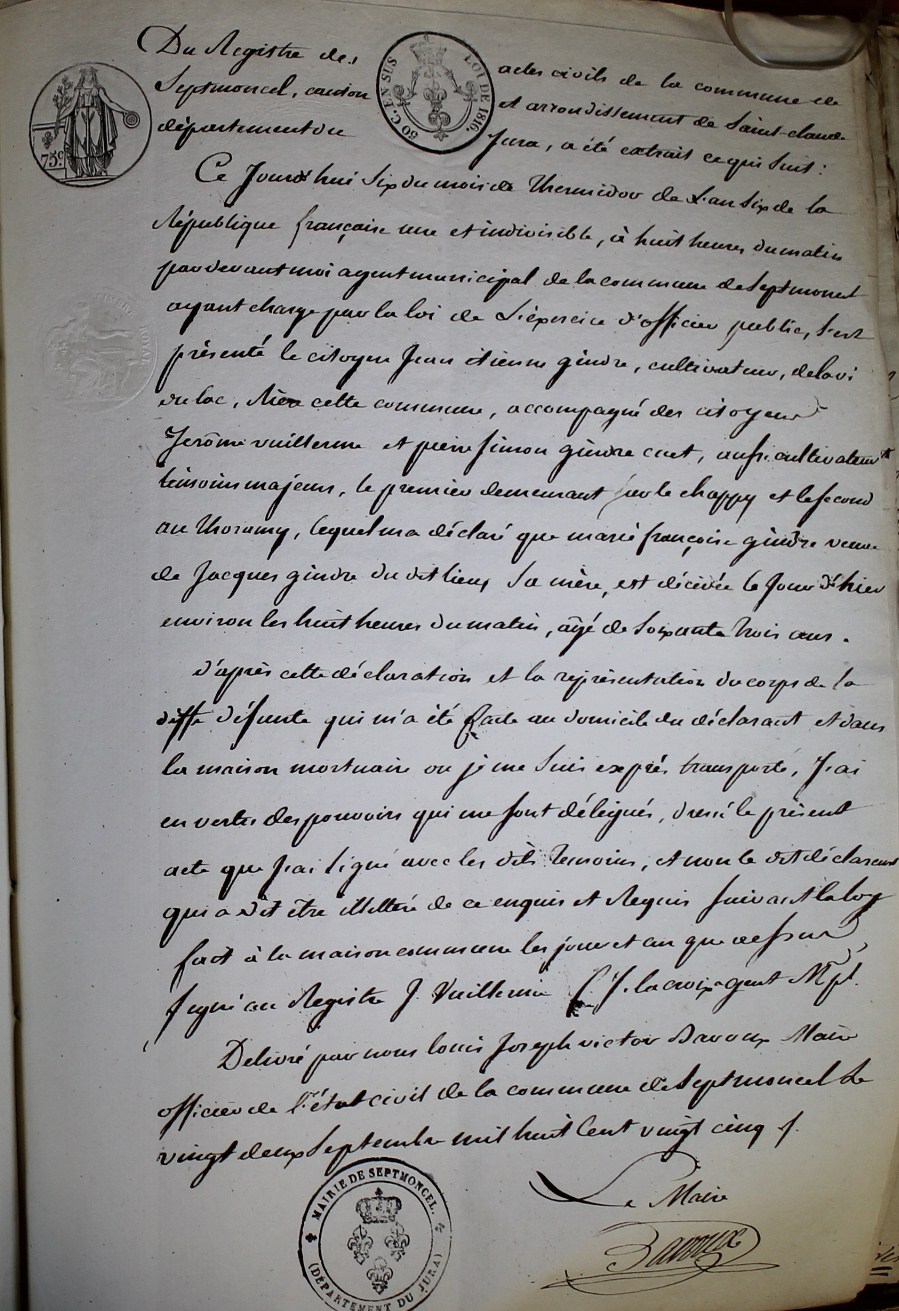 Du Registre des actes civils de la commune de
Septmoncel, canton et arrondissement de Saint-claude
département du Jura, a été extrait ce qui suit :
50 C. EN SUS LOI DE 1816.
75 c.
Ce Jourd'hui Six du mois de Thermidor de L'an Six de la
République française une et indivisible, à huit heures du matin
par devant moi agent municipal de la commune de Septmoncel
ayant charge par la loi de L'éxercice d'officier public, s'est
présenté le citoyen Jean étienne gindre, cultivateur, de lavi
du lac, cette commune, accompagné des citoyens
Jerôme vuillerme et pierre Simon gindre cuet, aussi cultivateurs
témoins majeurs, le premier demeurant sur le chappy et le second
au Thoramy, lequel m'a déclaré que marie françoise gindre veuve
de Jacques gindre du dit lieu, Sa mère, est décédée le Jour d'hier
environ les huit heures du matin, âgé de Soixante trois ans.
D'après cette déclaration et la représentation du corps de la
ditte défunte qui m'a été faite au domicile du déclarant et dans
la maison mortuaire ou je me Suis exprés transporté, J'ai
en vertu des pouvoirs qui me sont délégués, dressé le présent
acte que J'ai Signé avec les dits témoins, et non le dit déclarant
qui a dit être illettéré de ce enquis et Requis Suivant la loy
fait à la maison commune les jour et an que dessus
Signé au Registre J. Vuillerme C. J. lacroix agent Mpl.
Délivré par nous Louis Joseph victor Bavoux Maire
officier de l'état civil de la commune de Septmoncel Le
vingt deux Septembre mil huit Cent vingt cinq
Le Maire
Bavoux
MAIRIE DE SEPTMONCEL.
(DÉPARTEMENT DU JURA)